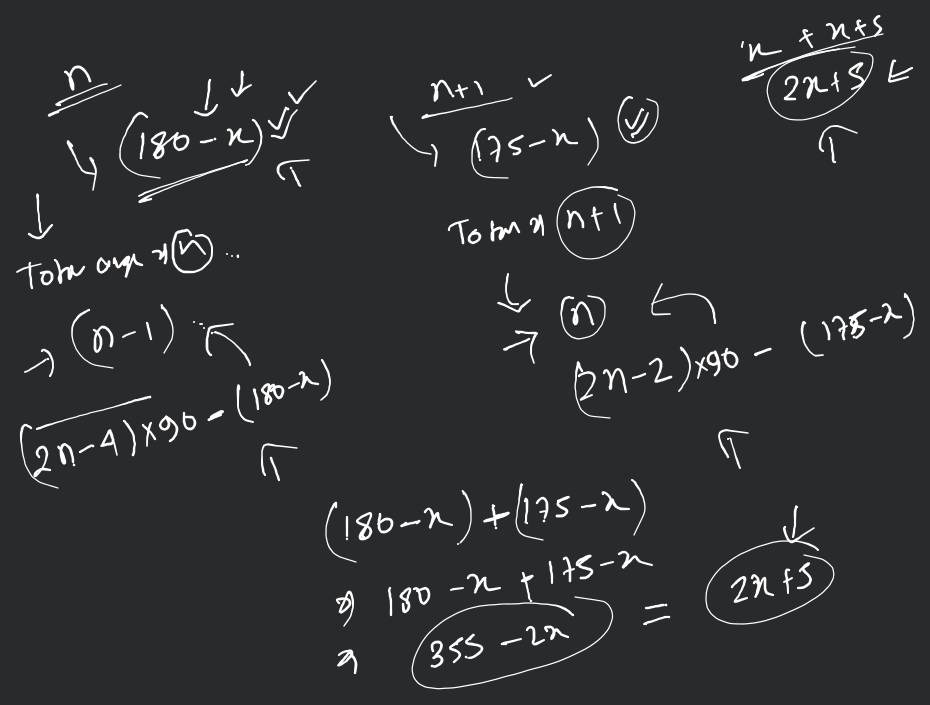 n
(180-x)
n+1
(175-x)
x + x+5
2x+5
n
n+1
(n-1)
n
(2n-4)×90 - (180-x)
(2n-2)×90 - (175-x)
(180-x)+(175-x)
⇒ 180-x+175-x
⇒ 355-2x = 2x+5